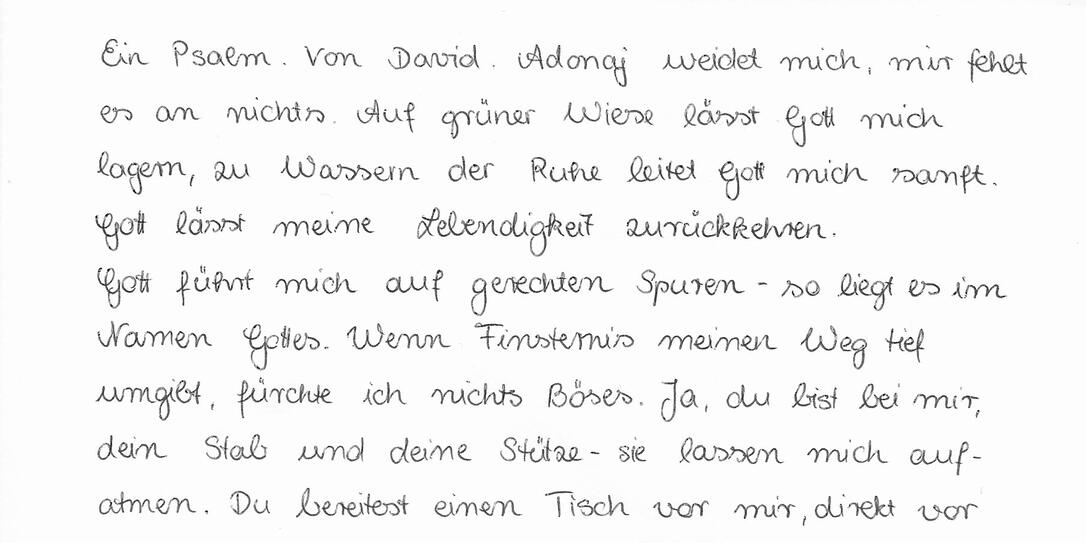 Ein Psalm. Von David. Adonaj weidet mich, mir fehlt
es an nichts. Auf grüner Wiese lässt Gott mich
lagern, zu Wassern der Ruhe leitet Gott mich sanft.
Gott lässt meine Lebendigkeit zurückkehren.
Gott führt mich auf gerechten Spuren - so liegt es im
Namen Gottes. Wenn Finsternis meinen Weg tief
umgibt, fürchte ich nichts Böses. Ja, du bist bei mir,
dein Stab und deine Stütze - sie lassen mich auf-
atmen. Du bereitest einen Tisch vor mir, direkt vor